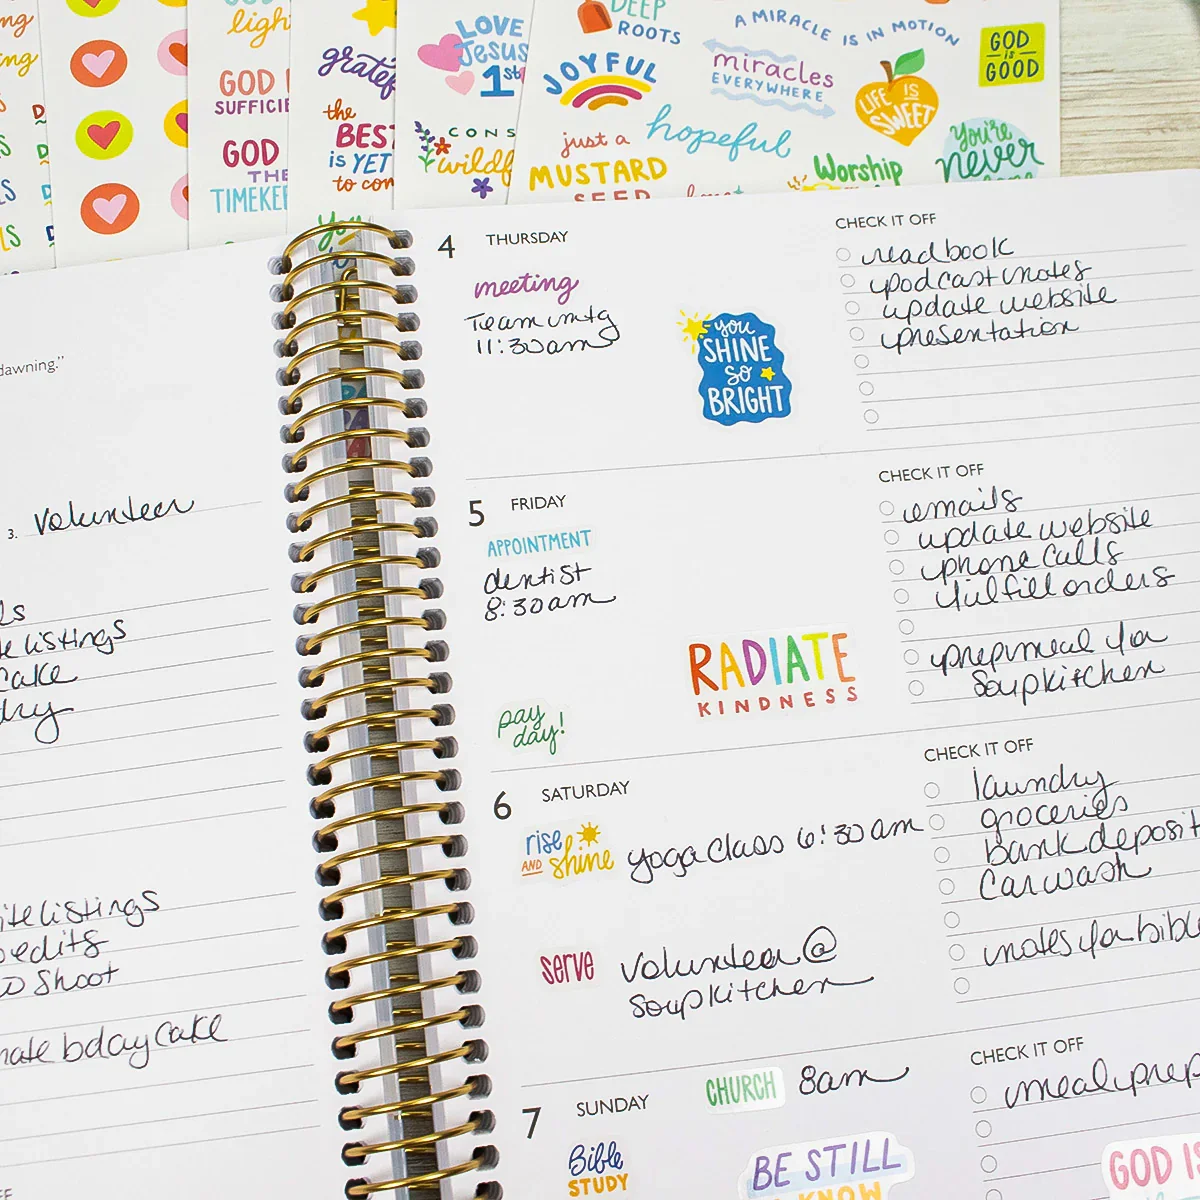 GOD
SUFFICIE
GOD
THE
TIMEKE
gratef
the
BEST
is YET
to com
LOVE
Jesus
1st
CONS
wildf
DEEP
ROOTS
JOYFUL
just a
MUSTARD
SEED
A MIRACLE IS IN MOTION
miracles
EVERYWHERE
hopeful
LIFE IS
SWEET
Worship
GOD
IS
GOOD
You're
never
dawning."
3. volunteer
listings
cake
listings
edits
shoot
bday cake
4 THURSDAY
meeting
Team mtg
11:30am
you
SHINE
so
BRIGHT
CHECK IT OFF
read book
podcast notes
update website
presentation
5 FRIDAY
APPOINTMENT
dentist
8:30am
pay
day!
RADIATE
KINDNESS
CHECK IT OFF
emails
update website
phone calls
fulfill orders
prep meal for
soup kitchen
6 SATURDAY
rise
AND shine
yoga class 6:30am
serve
volunteer @
soup kitchen
CHECK IT OFF
laundry
groceries
bank deposit
car wash
notes for bible
7 SUNDAY
CHURCH 8am
Bible
STUDY
BE STILL
KNOW
CHECK IT OFF
meal prep
GOD IS